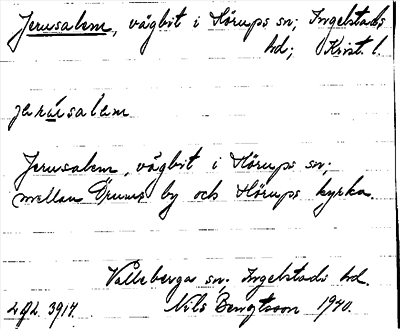 Jerusalem, vägbit i Hörups sn; Ingelstads
hd; Krist. l.
jerúsalem
Jerusalem, vägbit i Hörups sn;
mellan Örums by och Hörups kyrka.
Valleberga sn; Ingelstads hd.
LGL. 3917. Nils Bengtsson 1940.